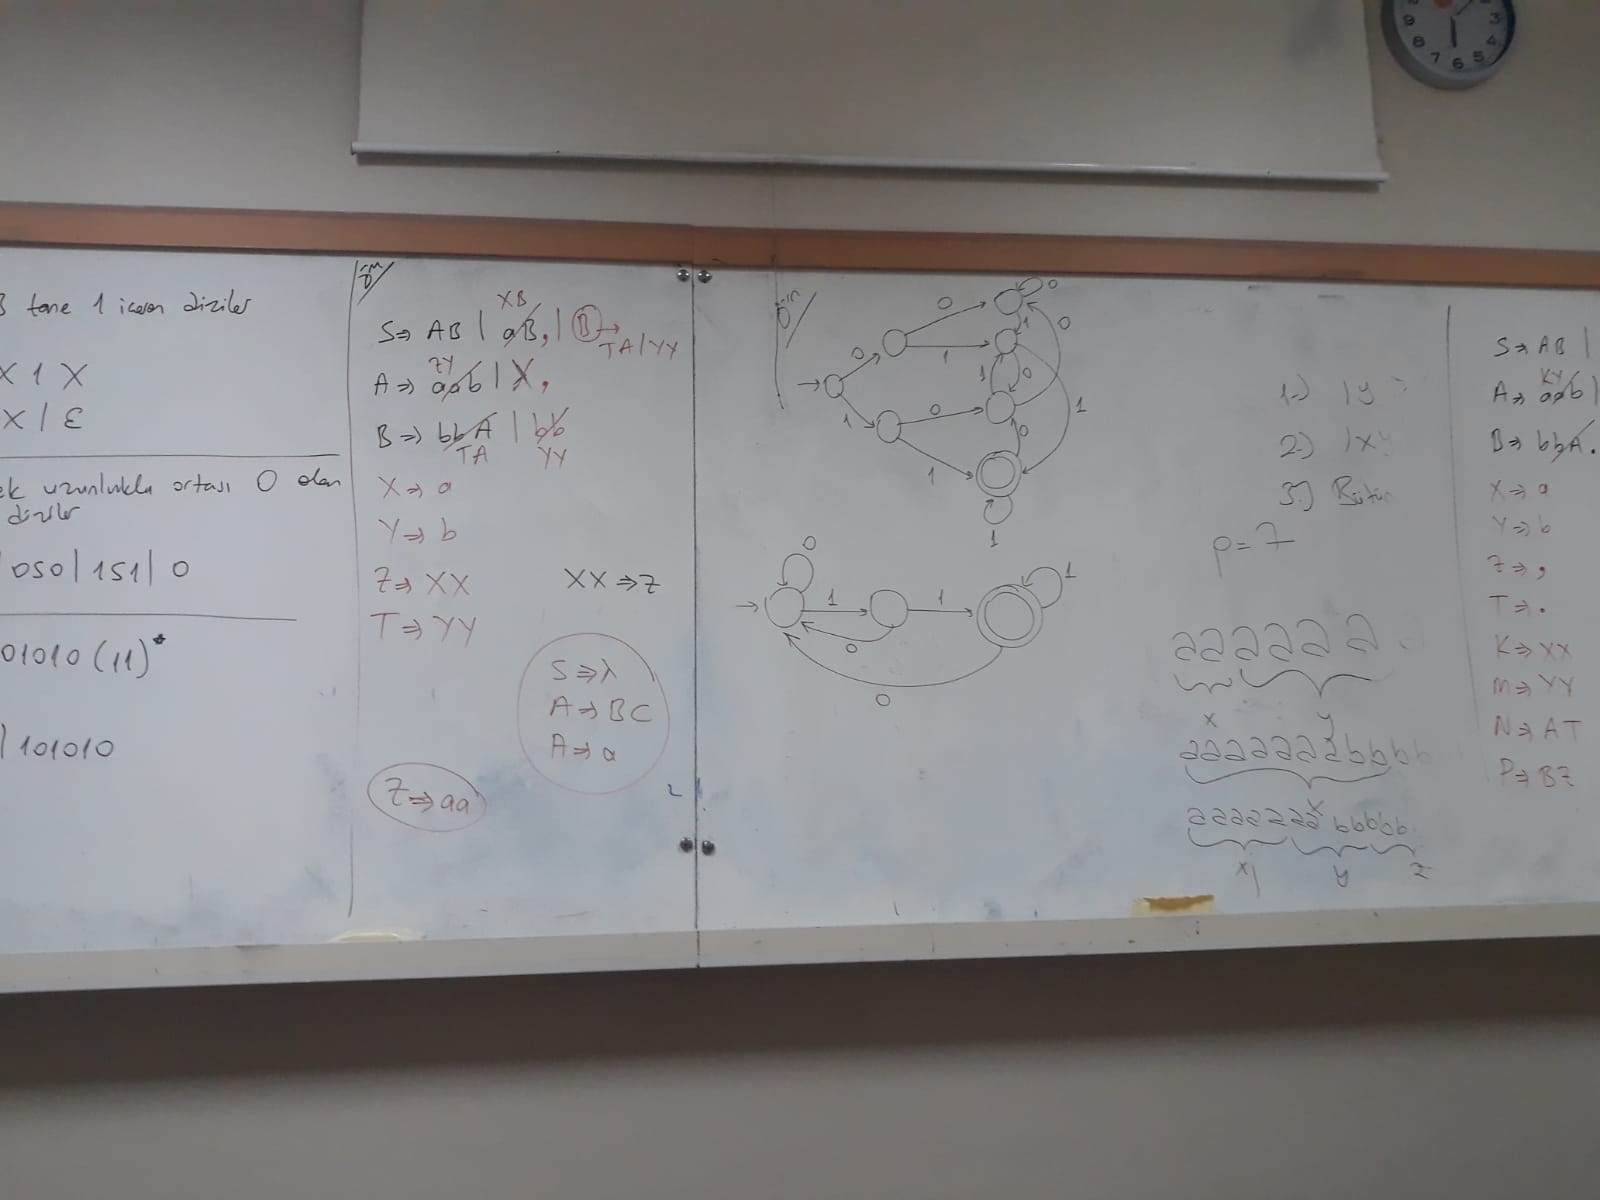 3 tane 1 içeren diziler
X 1 X
X | ε
ek uzunlukla ortası 0 olan
diziler
| 0S0 | 1S1 | 0
01010 (11)*
| 101010
ör/
XB
S⇒ AB | aB, | B →
TA | YY
ZY
A⇒ aab | X,
B⇒ bbA | bb
TA YY
X⇒ a
Y⇒ b
Z⇒ XX
XX⇒Z
T⇒ YY
S⇒λ
A⇒BC
A⇒a
Z⇒aa
ör/
0
0
0
0
1
1
1
0
1
0
1
0
1
1
0
1
1
1
0
0
1.) |y
2.) |xy
3.) Bütün
p=7
aaaaaa
x y
aaaaaaabbbb
x
aaaaaaabbbbb
x y z
S⇒ AB |
KY
A⇒ aab |
B⇒ bbA.
X⇒ a
Y⇒ b
Z⇒ ,
T⇒ .
K⇒ XX
M⇒ YY
N⇒ AT
P⇒ BZ
9
8
7
6
5
4
3